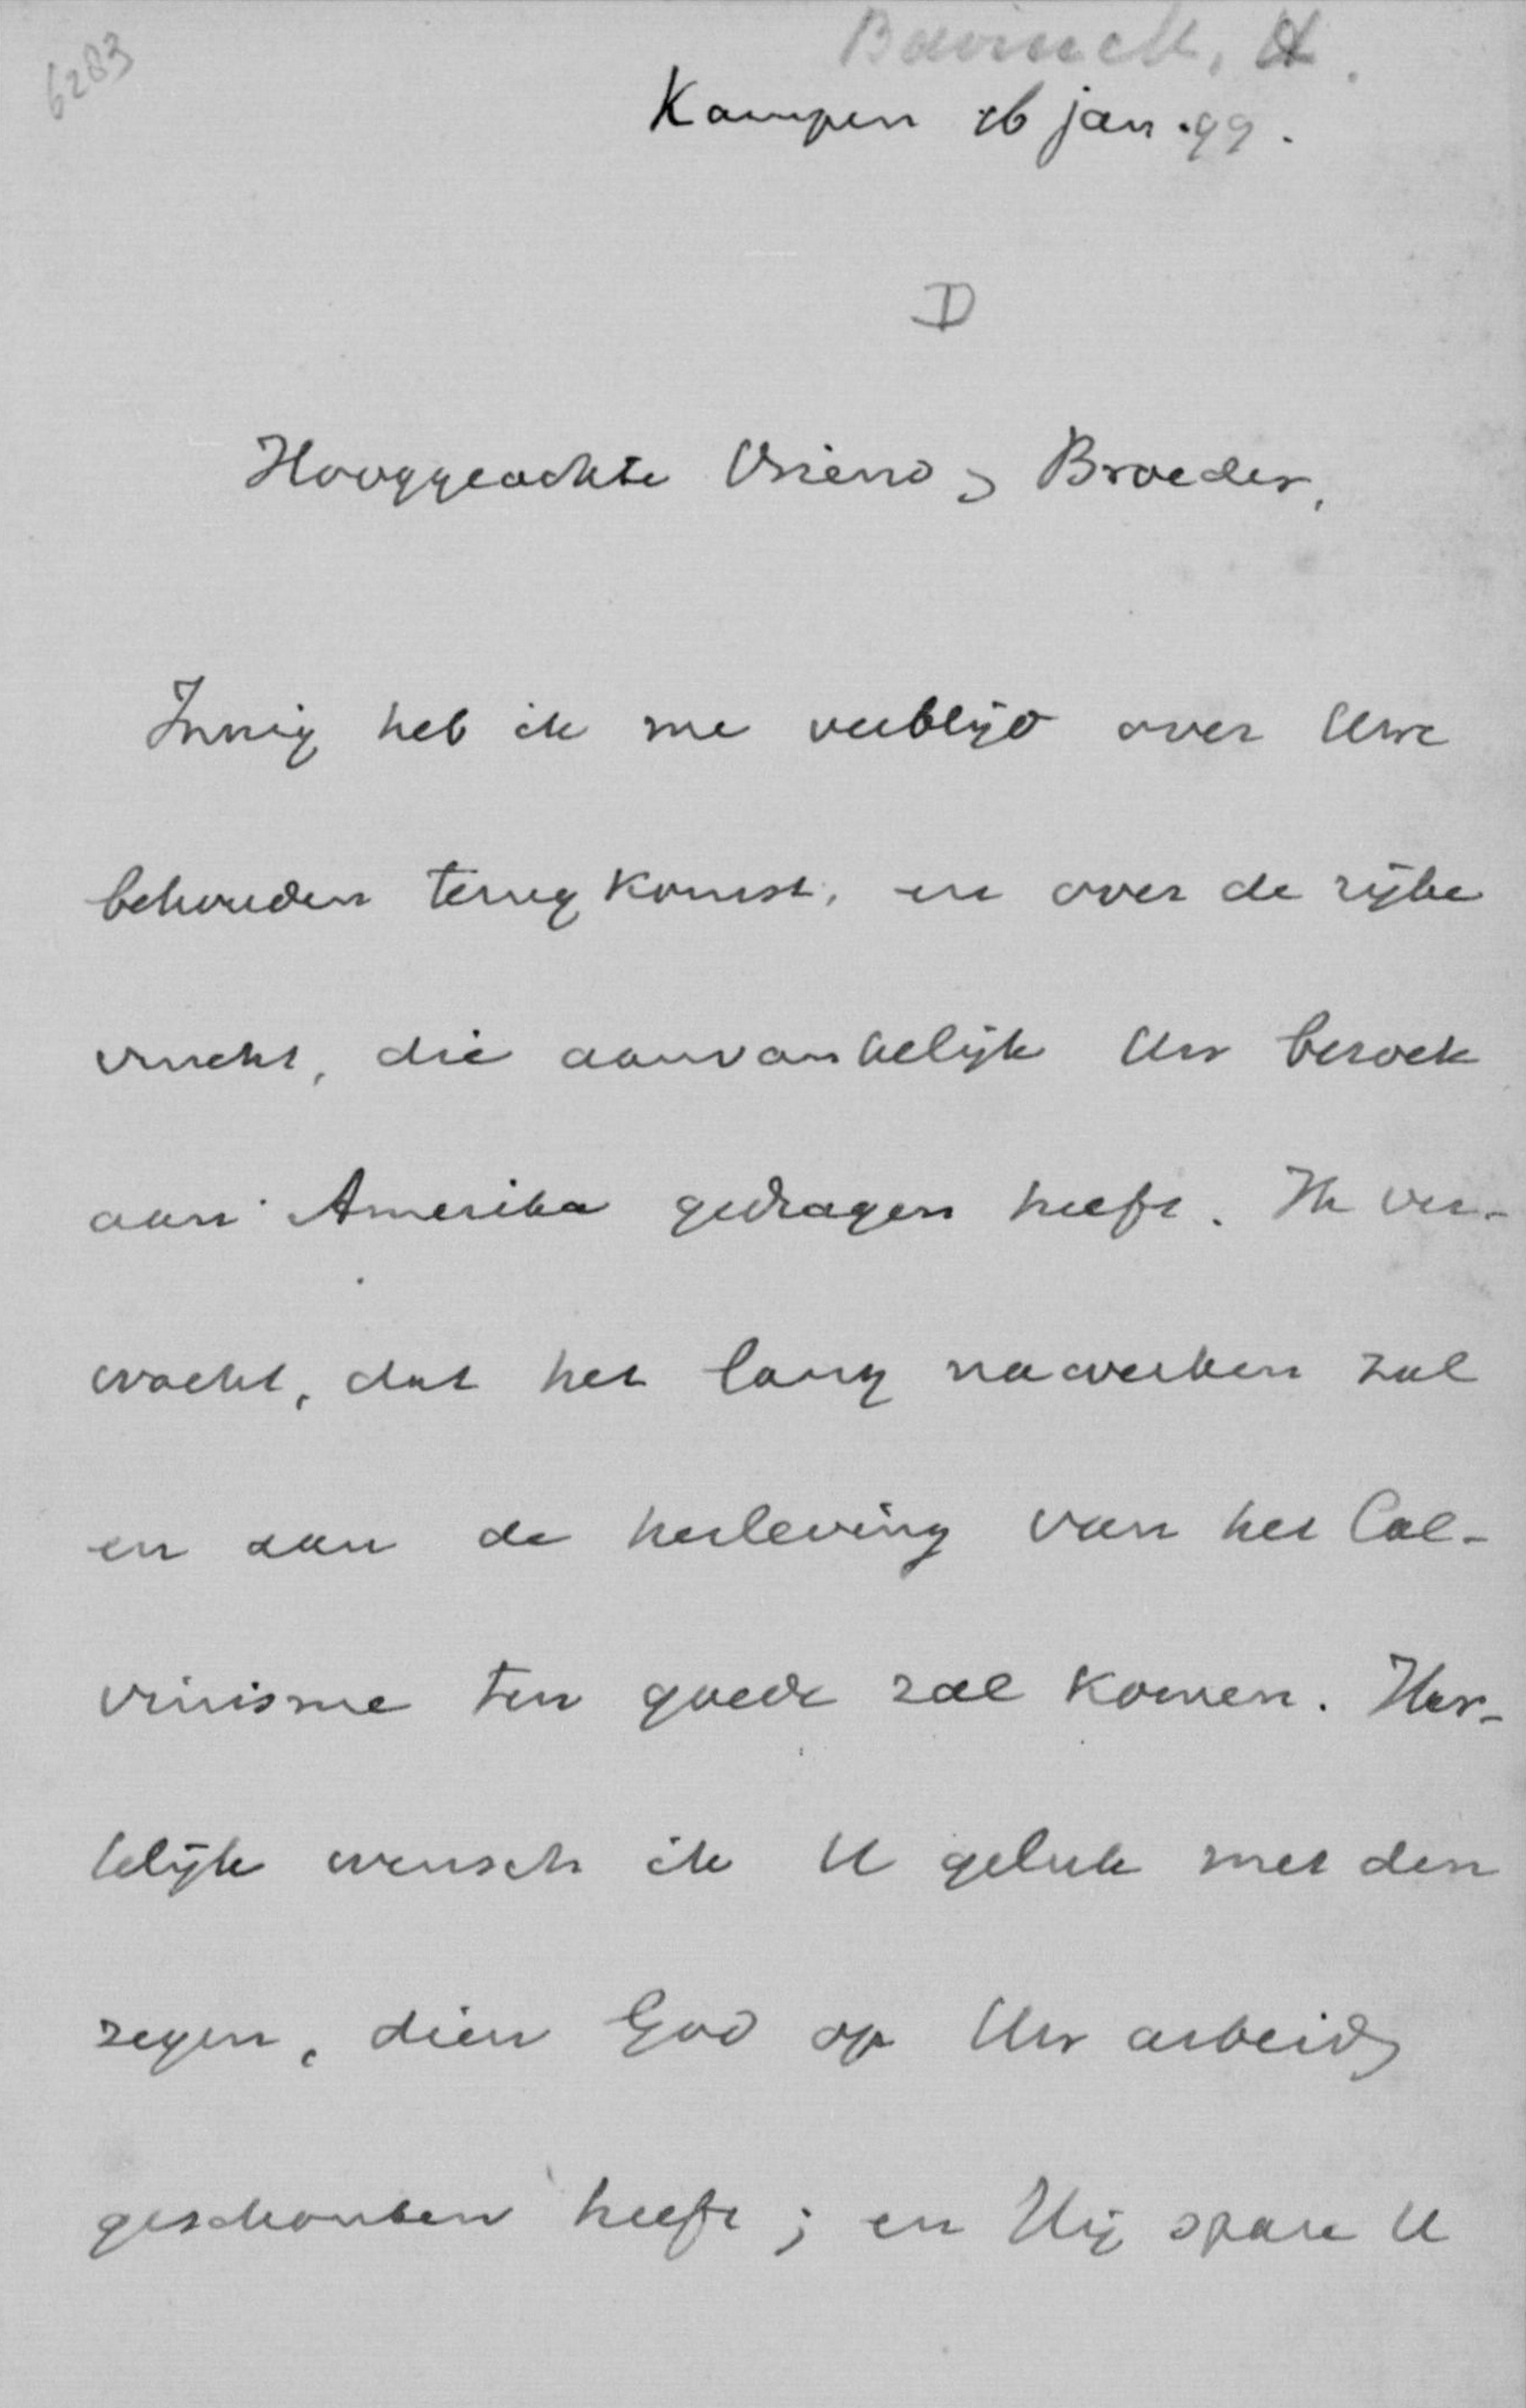 6283
Bavinck, H.
Kampen 16 jan. 99.
D
Hooggeachte Vriend & Broeder,
Innig heb ik me verblijd over Uwe
behouden terugkomst, en over de rijke
vrucht, die aanvankelijk Uw bezoek
aan Amerika gedragen heeft. Ik ver-
wacht, dat het lang nawerken zal
en aan de herleving van het Cal-
vinisme ten goede zal komen. Har-
telijk wensch ik U geluk met den
zegen, dien God op Uw arbeid
geschonken heeft; en Hij spare U